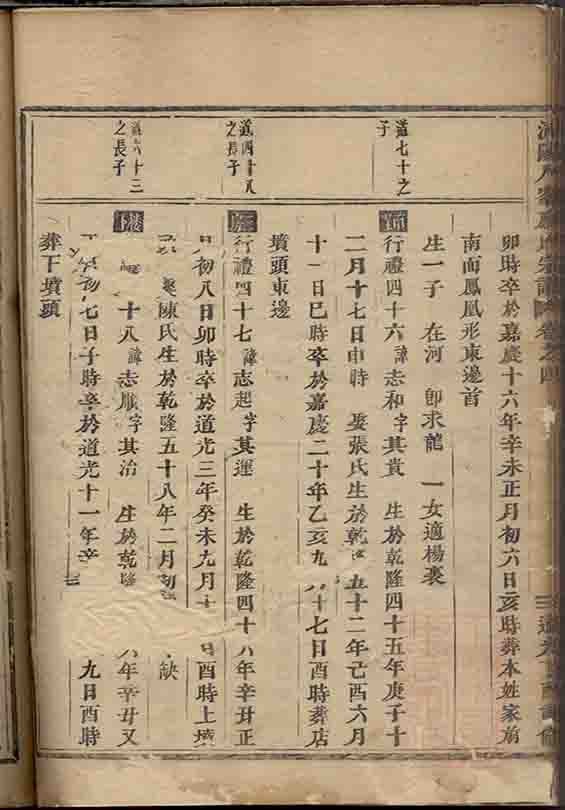 卯時卒於嘉慶十六年辛未正月初六日亥時葬本姓家前
南面鳳凰形東邊首
生一子 在河 即求龍 一女適楊裘
道七十之
子
行禮四十六諱志和字其貴 生於乾隆四十五年庚子十
二月十七日申時 娶張氏生於乾 五十二年己酉六月
十一日巳時卒於嘉慶二十年乙亥九 八十七日酉時葬店
墳頭東邊
道四十八
之長子
行禮四十七諱志起字其運 生於乾隆四十六年辛丑正
月初八日卯時卒於道光三年癸未九月十 日酉時上墳
娶陳氏生於乾隆五十八年二月初 缺
道六十三
之長子
十八諱志順字其治 生於乾隆 六年辛丑又
初七日子時卒於道光十一年辛 九日酉時
葬下墳頭